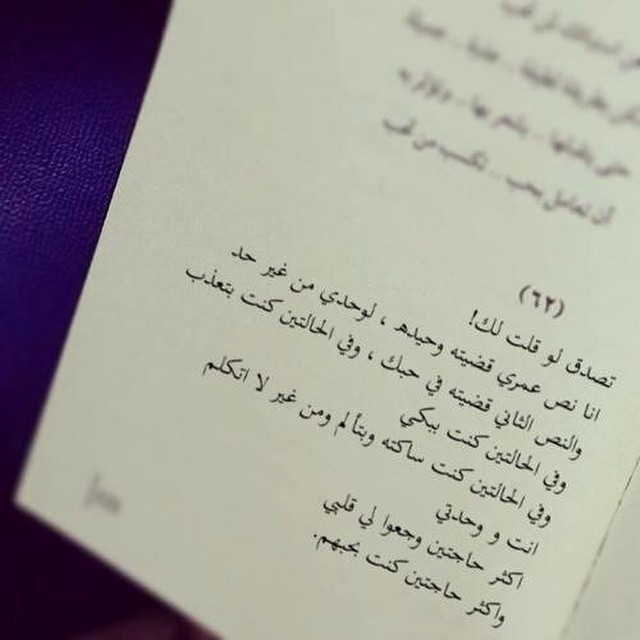 أن تعامل بحب .. تكسب من تحب
(٦٢)
تصدق لو قلت لك!
انا نص عمري قضيته وحيده ، لوحدي من غير حد
والنص الثاني قضيته في حبك ، وفي الحالتين كنت بتعذب
وفي الحالتين كنت بيكي
وفي الحالتين كنت ساكته وبتألم ومن غير لا اتكلم
انت و وحدتي
اكثر حاجتين وجعوا لي قلبي
واكثر حاجتين كنت بحبهم.